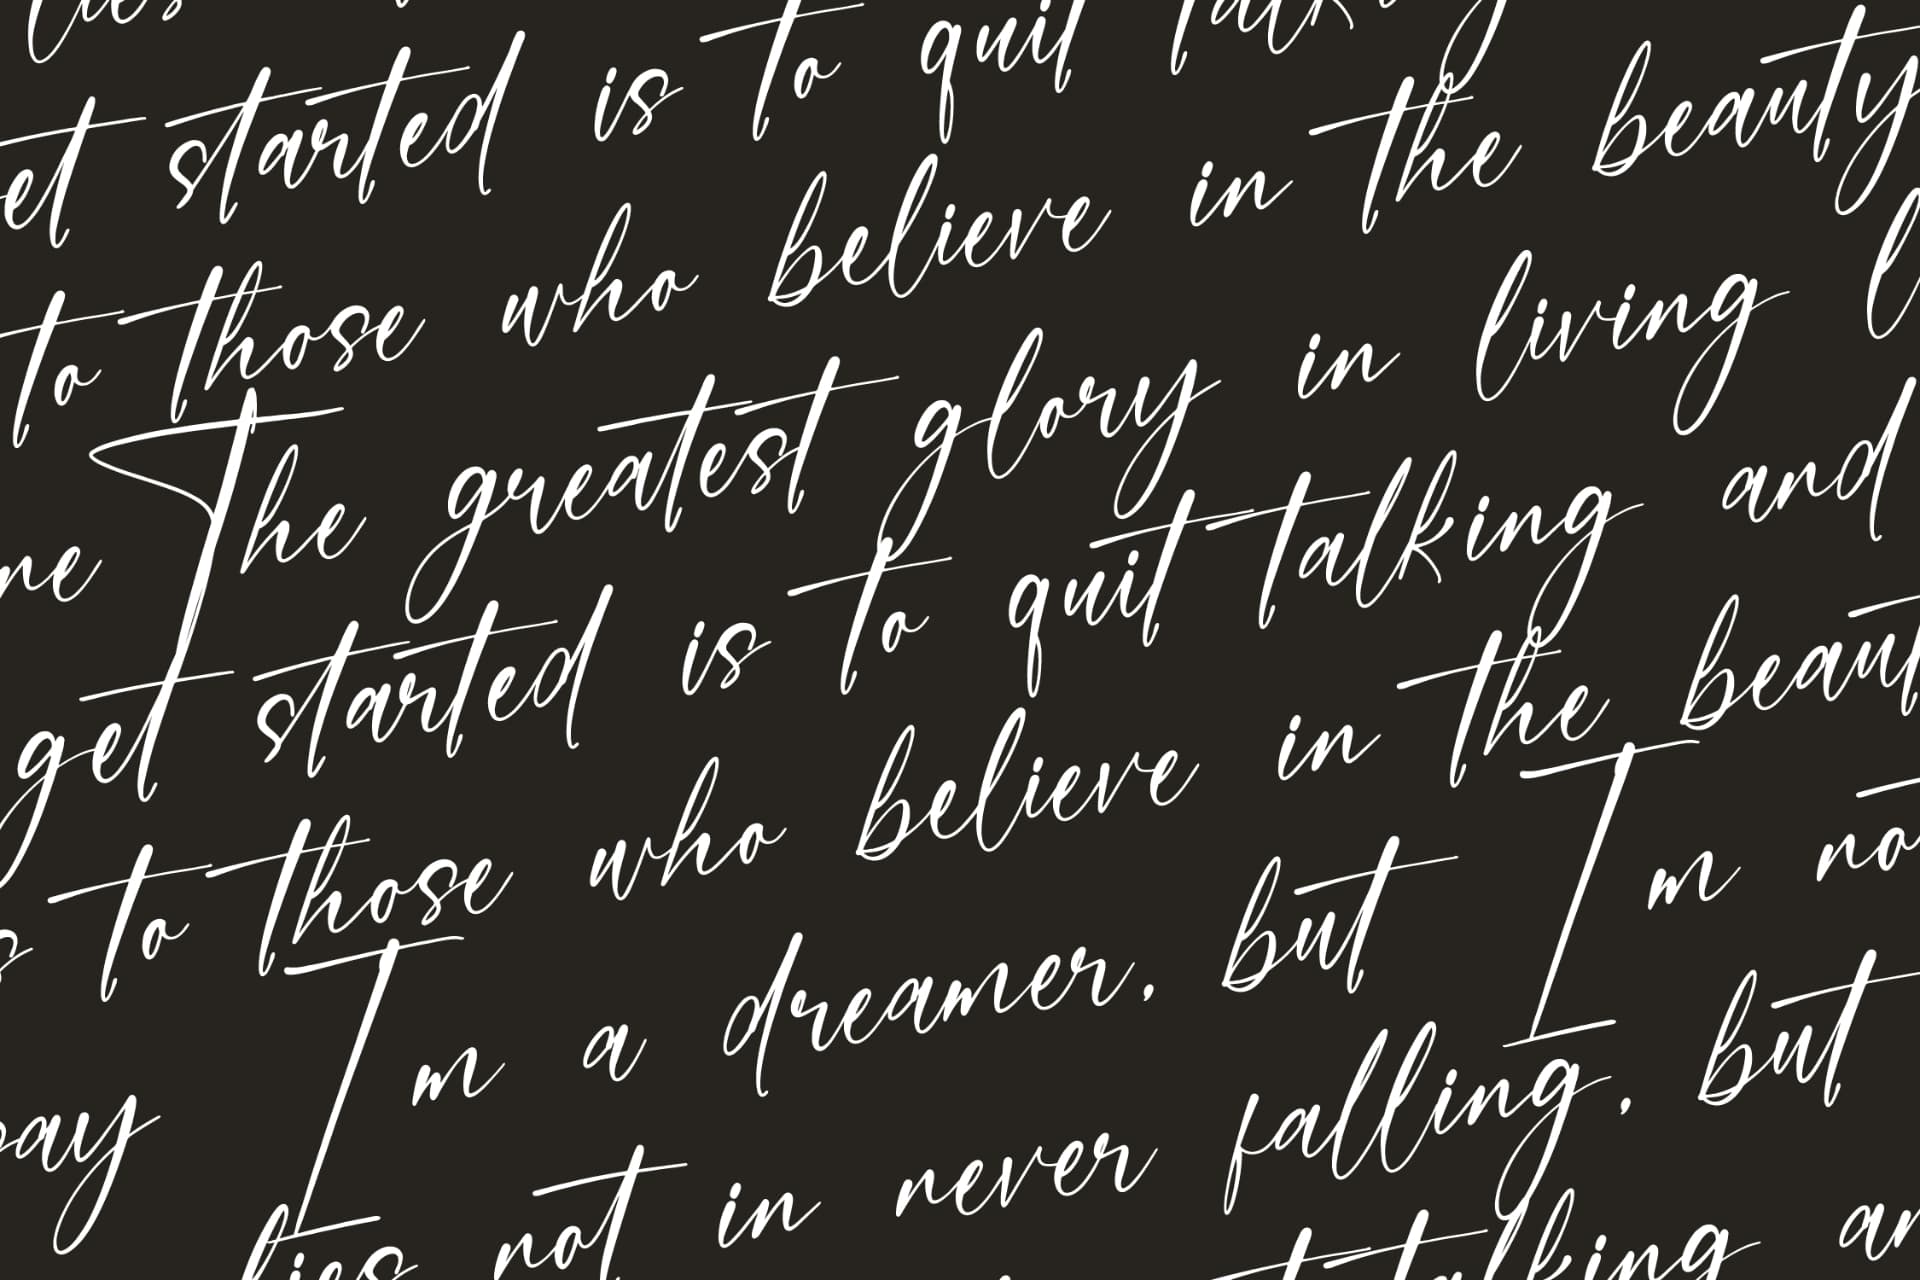 lies
et started is to quit
to those who believe in the beauty
The greatest glory in living
get started is to quit talking and
to those who believe in the
I m a dreamer, but I m
lies not in never falling, but